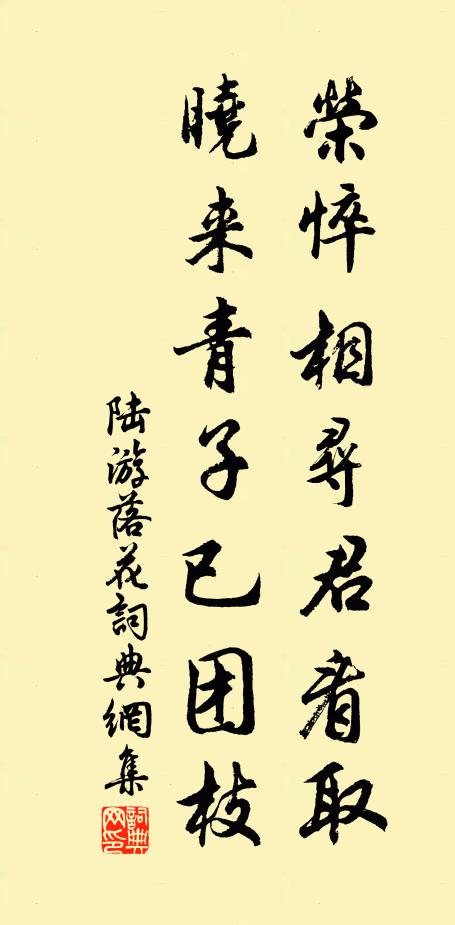 榮悴相尋君看取
曉来青子已团枝
陆游落花詞典網集
詞典网印